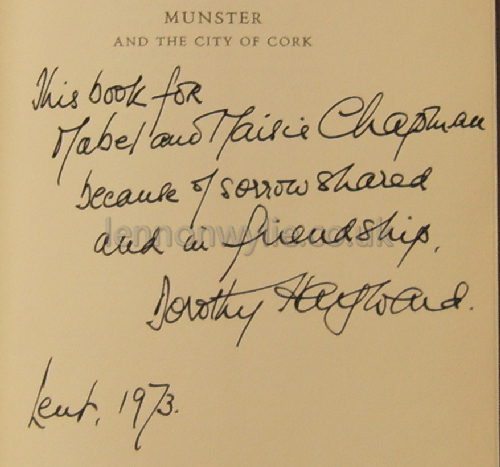 MUNSTER
AND THE CITY OF CORK
This book for
Mabel and Maisie Chapman
because of sorrow shared
lennonwylie.co.uk
and in friendship.
Dorothy Hayward.
Lent, 1973.